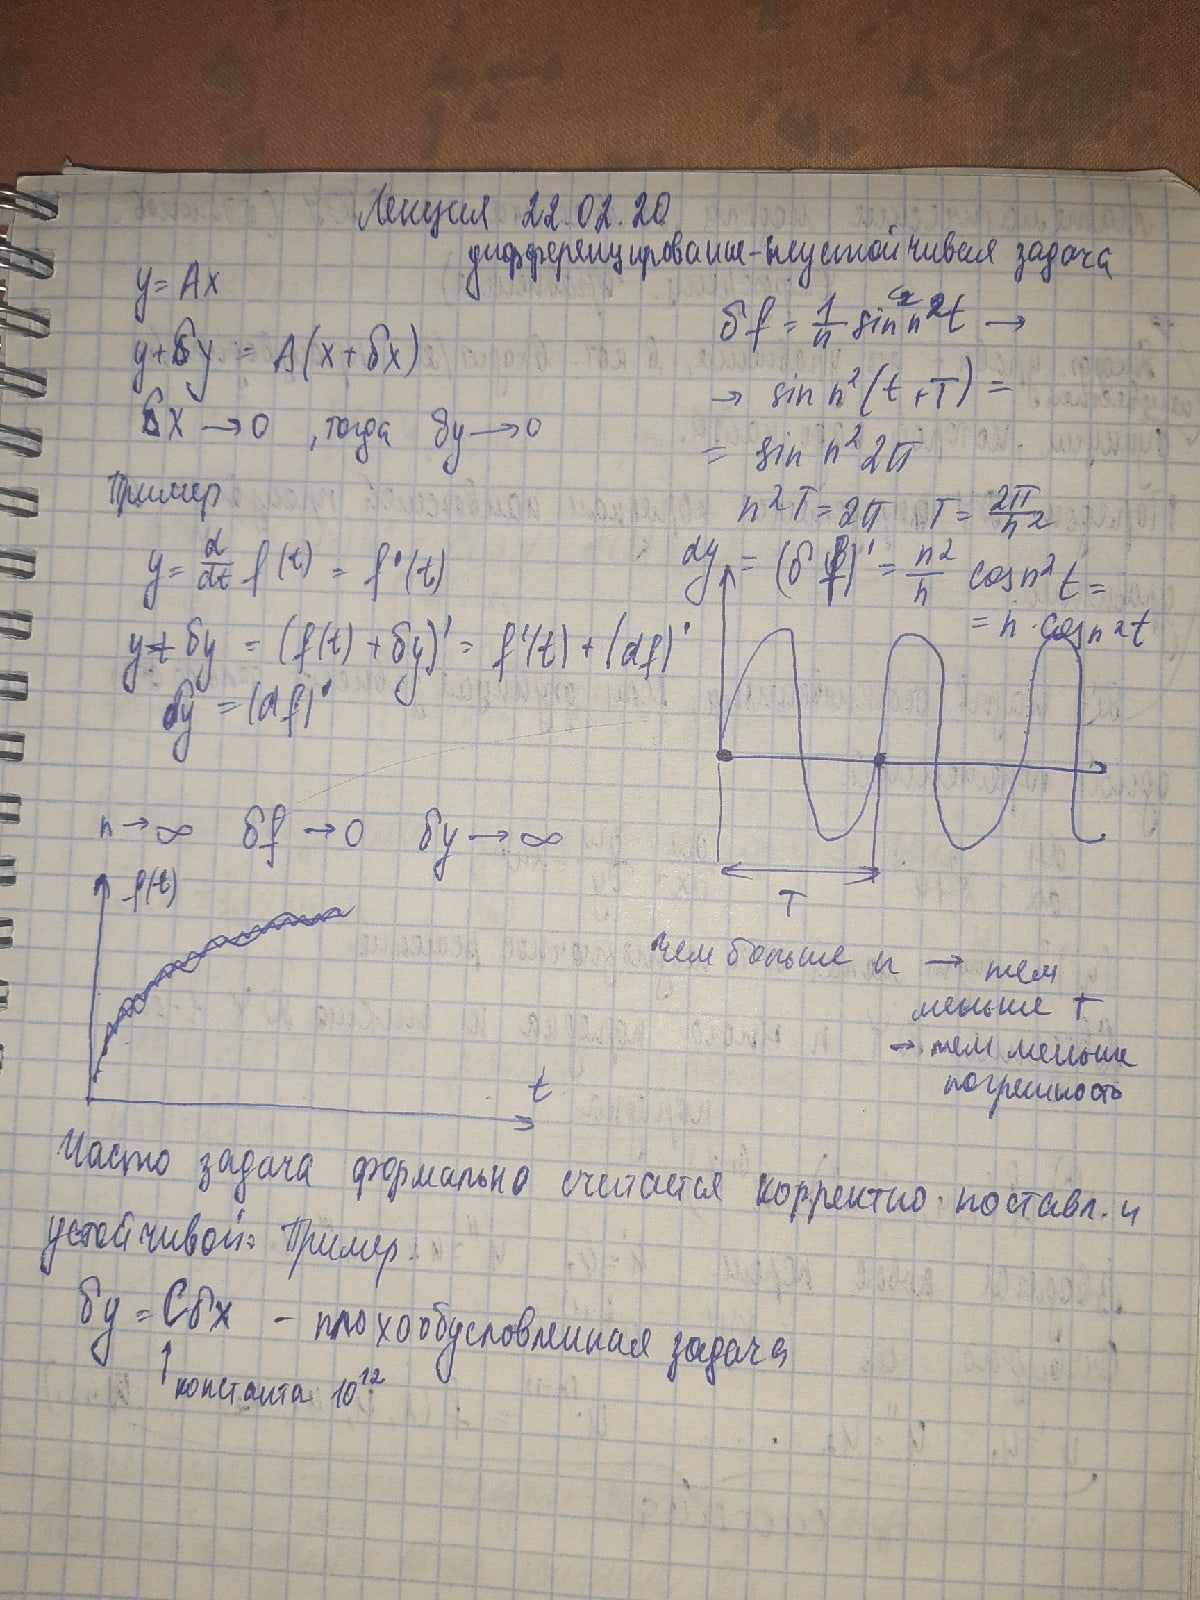 Лекция 22.02.20
дифференцирование - неустойчивая задача
y = Ax
y + δy = A(x + δx)
δx → 0 , тогда δy → 0
Пример
y = d/dt f(t) = f'(t)
y + δy = (f(t) + δy)' = f'(t) + (df)'
δy = (df)'
n → ∞ δf → 0 δy → ∞
f(t)
t
δf = 1/n sin n²t →
→ sin n²(t + T) =
= sin n² 2π
n²T = 2π T = 2π/n²
dy = (δf)' = n²/n cos n²t =
= n · cos n²t
T
чем больше n → тем
меньше T
→ тем меньше
погрешность
Часто задача формально считается корректно поставл. и
устойчивой. Пример
δy = Cδx - плохообусловленная задача
↑
константа 10¹²